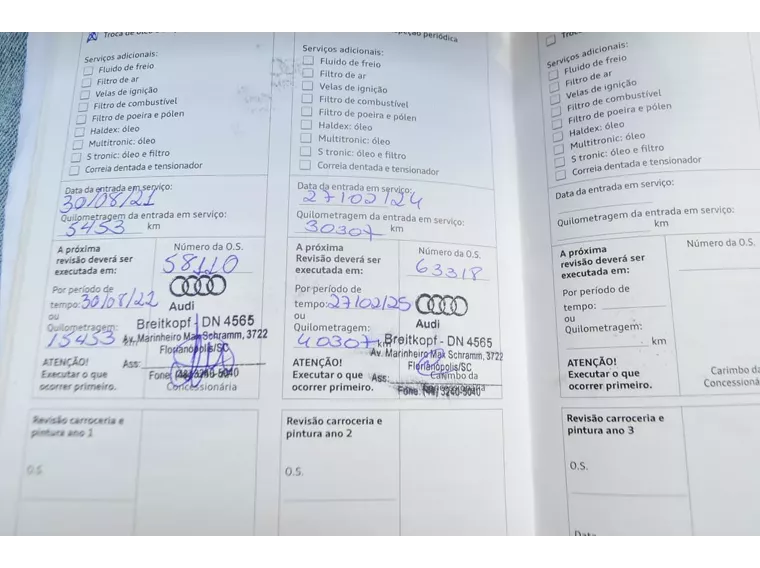 Serviços adicionais:
Fluido de freio
Filtro de ar
Velas de ignição
Filtro de combustível
Filtro de poeira e pólen
Haldex: óleo
Multitronic: óleo
S tronic: óleo e filtro
Correia dentada e tensionador
Data da entrada em serviço:
30/08/21
Quilometragem da entrada em serviço:
5453 km
A próxima
revisão deverá ser
executada em:
Número da O.S.
58110
Por período de
tempo: 30/08/22
ou
Quilometragem:
15453 km
ATENÇÃO!
Executar o que
ocorrer primeiro.
Audi
Breitkopf - DN 4565
Av. Marinheiro Max Schramm, 3722
Florianópolis/SC
Ass:
Fone: (48) 3240-5040
Concessionária
Revisão carroceria e
pintura ano 1
O.S.
periódica
Serviços adicionais:
Fluido de freio
Filtro de ar
Velas de ignição
Filtro de combustível
Filtro de poeira e pólen
Haldex: óleo
Multitronic: óleo
S tronic: óleo e filtro
Correia dentada e tensionador
Data da entrada em serviço:
27/02/24
Quilometragem da entrada em serviço:
30307 km
A próxima
Revisão deverá ser
executada em:
Número da O.S.
63318
Por período de
tempo: 27/02/25
ou
Quilometragem:
40307 km
ATENÇÃO!
Executar o que
ocorrer primeiro.
Audi
Breitkopf - DN 4565
Av. Marinheiro Max Schramm, 3722
Florianópolis/SC
Ass:
Carimbo da
Concessionária
Fone: (48) 3240-5040
Revisão carroceria e
pintura ano 2
O.S.
Serviços adicionais:
Fluido de freio
Filtro de ar
Velas de ignição
Filtro de combustível
Filtro de poeira e pólen
Haldex: óleo
Multitronic: óleo
S tronic: óleo e filtro
Correia dentada e tensionador
Data da entrada em serviço:
Quilometragem da entrada em serviço:
km
A próxima
revisão deverá ser
executada em:
Número da O.S.
Por período de
tempo:
ou
Quilometragem:
km
ATENÇÃO!
Executar o que
ocorrer primeiro.
Carimbo da
Concessionária
Revisão carroceria e
pintura ano 3
O.S.
Data